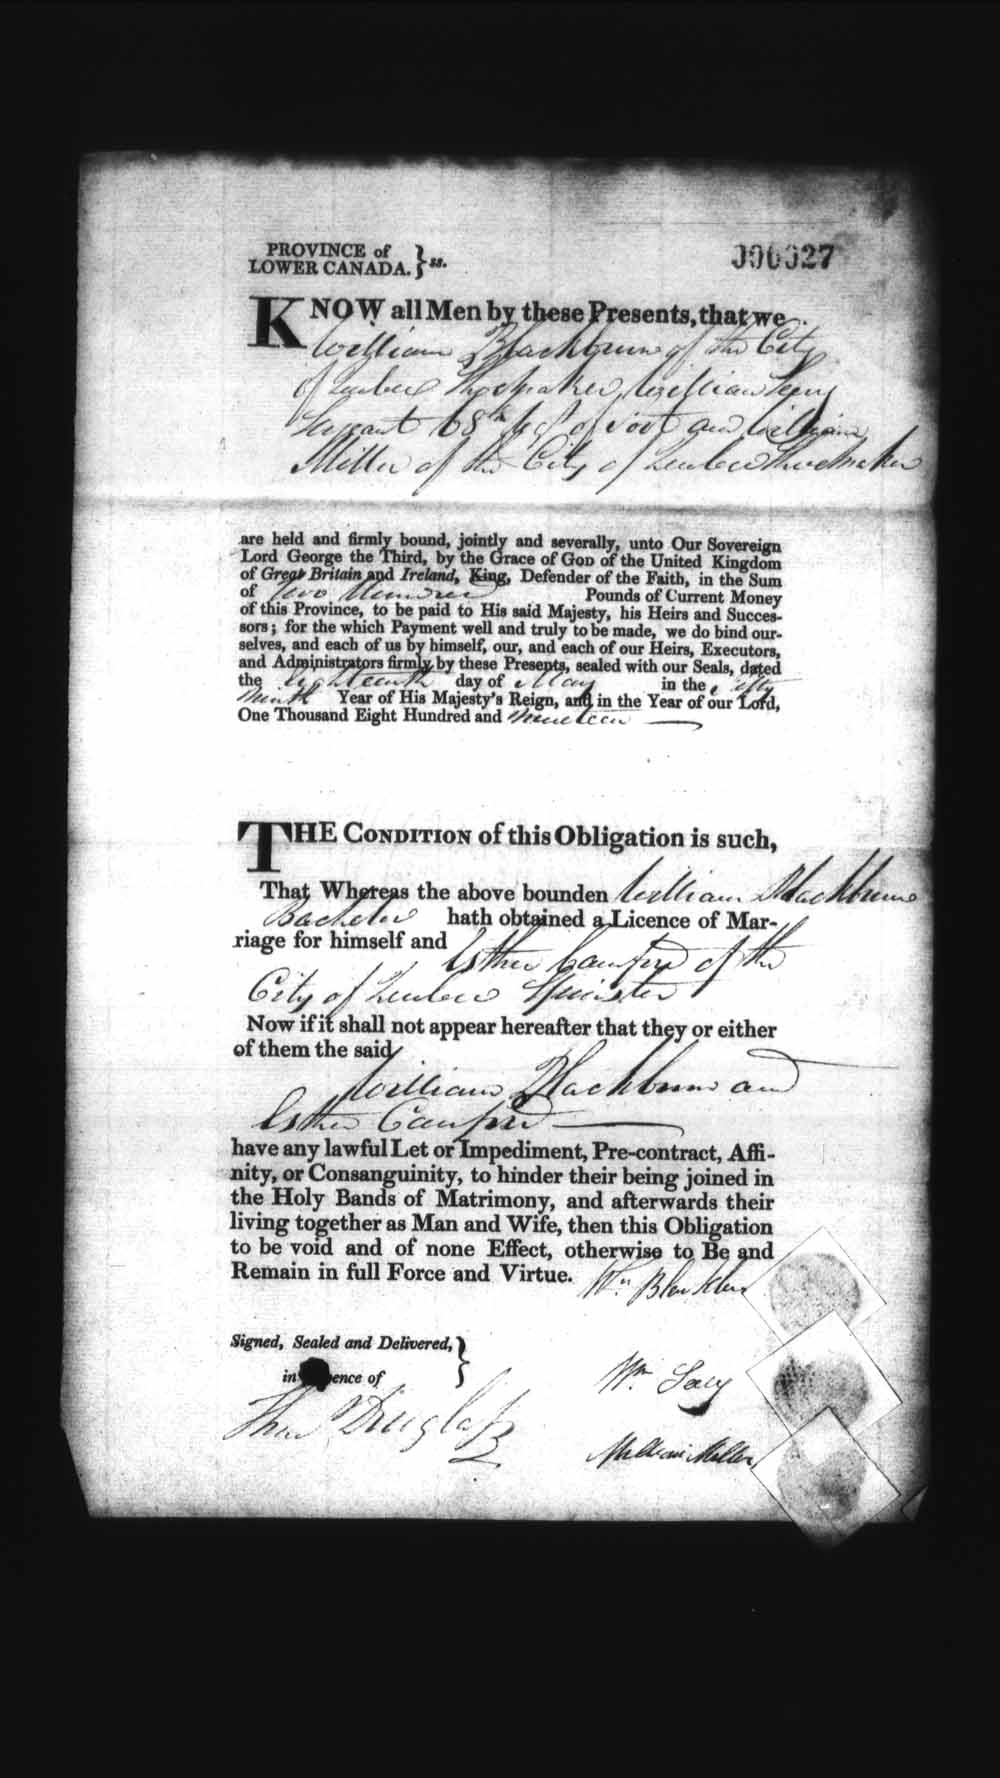 PROVINCE of
LOWER CANADA. } ss.
000027
KNOW all Men by these Presents, that we
William Blackburn of the City
of Quebec Shoemaker, William
Serjeant 68th Regt of Foot and William
Miller of the City of Quebec Shoemaker
are held and firmly bound, jointly and severally, unto Our Sovereign
Lord George the Third, by the Grace of GOD of the United Kingdom
of Great Britain and Ireland, King, Defender of the Faith, in the Sum
of Two Hundred Pounds of Current Money
of this Province, to be paid to His said Majesty, his Heirs and Succes-
sors; for the which Payment well and truly to be made, we do bind our-
selves, and each of us by himself, our, and each of our Heirs, Executors,
and Administrators firmly by these Presents, sealed with our Seals, dated
the Eighteenth day of May in the fifty
ninth Year of His Majesty's Reign, and in the Year of our Lord,
One Thousand Eight Hundred and nineteen
THE CONDITION of this Obligation is such,
That Whereas the above bounden William Blackburn
Bachelor hath obtained a Licence of Mar-
riage for himself and Esther of the
City of Quebec Spinster
Now if it shall not appear hereafter that they or either
of them the said
William Blackburn and
Esther
have any lawful Let or Impediment, Pre-contract, Affi-
nity, or Consanguinity, to hinder their being joined in
the Holy Bands of Matrimony, and afterwards their
living together as Man and Wife, then this Obligation
to be void and of none Effect, otherwise to Be and
Remain in full Force and Virtue.
Wm Blackburn
Signed, Sealed and Delivered, }
in ence of
Wm
Douglass
William Miller